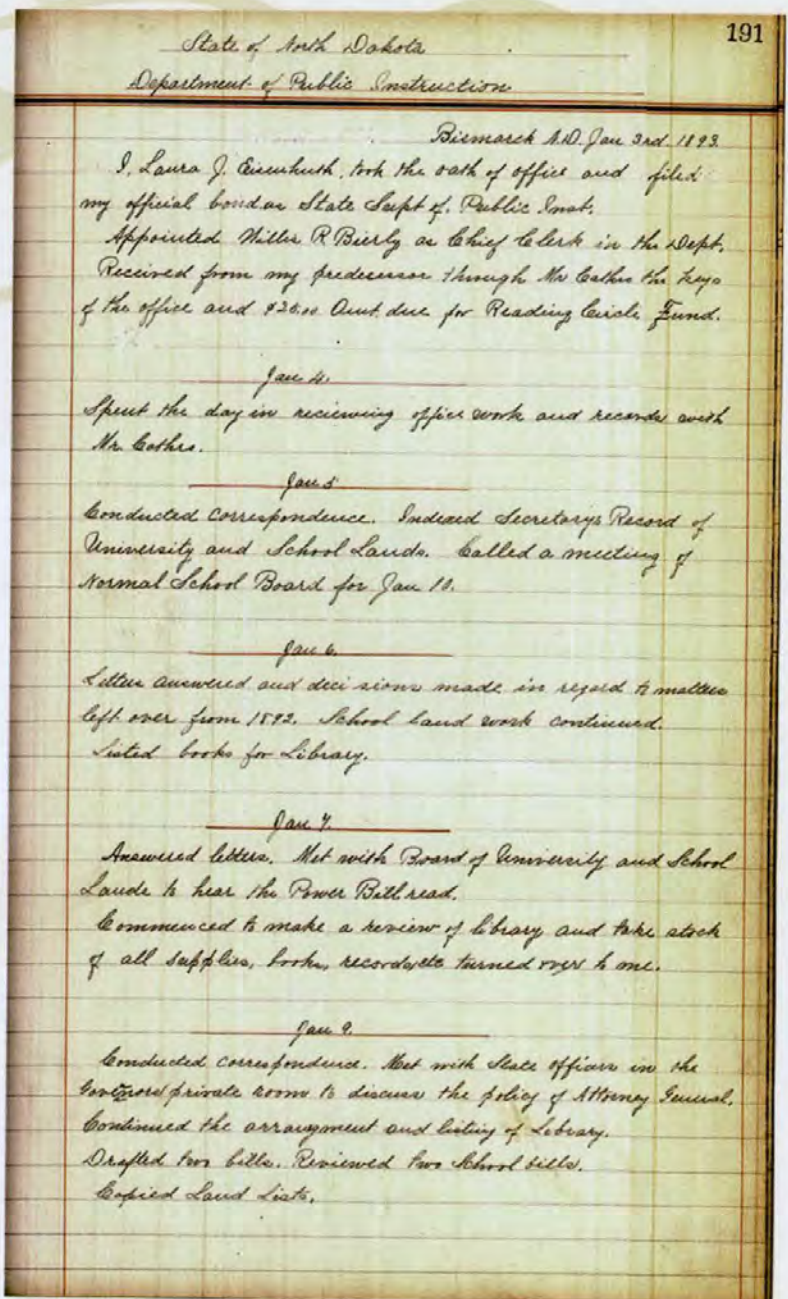 191
State of North Dakota
Department of Public Instruction
Bismarck N.D. Jan 3rd 1893
I, Laura J. Eisenhuth, took the oath of office and filed
my official bond as State Supt of. Public Inst.
Appointed Willis R Bierly as Chief Clerk in the Dept.
Received from my predecessor through Mr Cathro the keys
of the office and Amt. due for Reading Circle Fund.
Jan 4.
Spent the day in reviewing office work and records with
Mr. Cathro.
Jan 5
Conducted correspondence. Indexed Secretarys Record of
University and School Lands. Called a meeting of
Normal School Board for Jan 10.
Jan 6.
Letters answered and decisions made in regard to matters
left over from 1892. School land work continued.
Listed books for Library.
Jan 7.
Answered letters. Met with Board of University and School
Lands to hear the Power Bill read.
Commenced to make a review of library and take stock
of all supplies, books, records etc turned over to me.
Jan 9.
Conducted correspondence. Met with State officers in the
Governors private room to discuss the policy of Attorney General.
Continued the arrangment and listing of Library.
Drafted two bills. Reviewed two School bills.
Copied Land Lists.